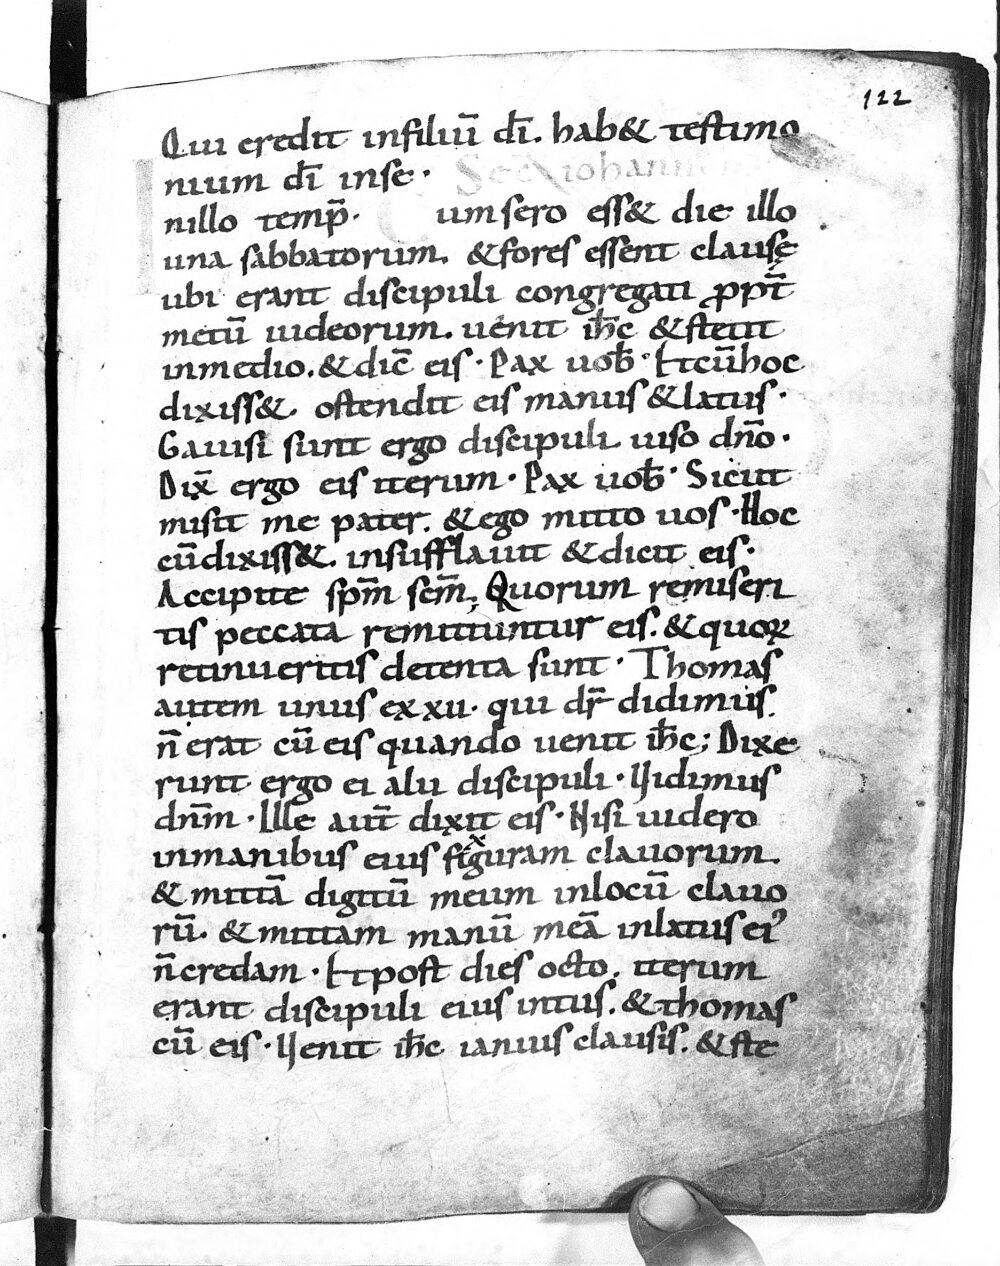 122
Qui credit infiliū dī. hab& testimo
nium dī inse·
Scđ iohann
Inillo temp̄. Cumsero ess& die illo
una sabbatorum. &fores essent clausę
ubi erant discipuli congregati ꝓpt̄
metū iudeorum. uenit ih̄c &stetit
inmedio. &dic̄ eis· Pax uob̄· Etcūhoc
dixiss&. ostendit eis manus &latus·
Gauisi sunt ergo discipuli uiso dn̄o·
Dix̄ ergo eis iterum· Pax uob̄· Sicut
misit me pater. &ego mitto uos· Hoc
cūdixiss&. insufflauit &dicit eis·
Accipite sp̄m sc̄m; Quorum remiseri
tis peccata remittuntur eis. &quoꝝ
retinueritis detenta sunt· Thomas
autem unus exxii· qui dr̄ didimus.
n̄ erat cū eis quando uenit ih̄c; Dixe
runt ergo ei alii discipuli· Uidimus
dn̄m· Ille aut̄ dixit eis· Nisi uidero
inmanibus eius fixuram clauorum.
&mittā digitū meum inlocū clauo
rū. &mittam manū meā inlatus ei᾿
n̄credam· Etpost dies octo. iterum
erant discipuli eius intus. &thomas
cū eis· Uenit ih̄c ianuis clausis. &ste